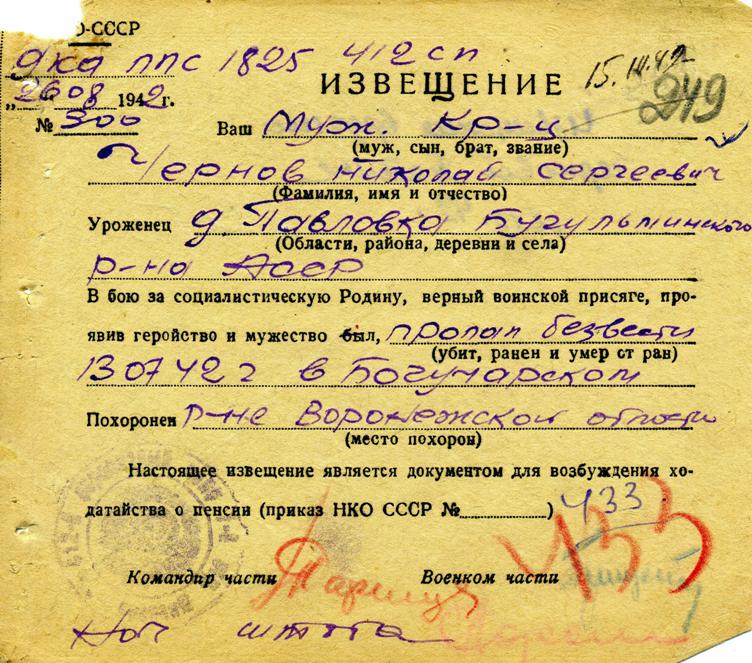 О-СССР
ППС 1825 412 СП
ИЗВЕЩЕНИЕ
249
„26“ 08 1942 г.
№ 300
Ваш Муж. Кр-ц
(муж, сын, брат, звание)
Чернов Николай Сергеевич
(Фамилия, имя и отчество)
Уроженец д. Павловка Бугульминского
(Области, района, деревни и села)
р-на АССР
В бою за социалистическую Родину, верный воинской присяге, про-
явив геройство и мужество был, пропал безвести
(убит, ранен и умер от ран)
130742 г в Богучарском
Похоронен р-не Воронежской области
(место похорон)
Настоящее извещение является документом для возбуждения хо-
датайства о пенсии (приказ НКО СССР № ) 433
433
Командир части Военком части
Нач штаба